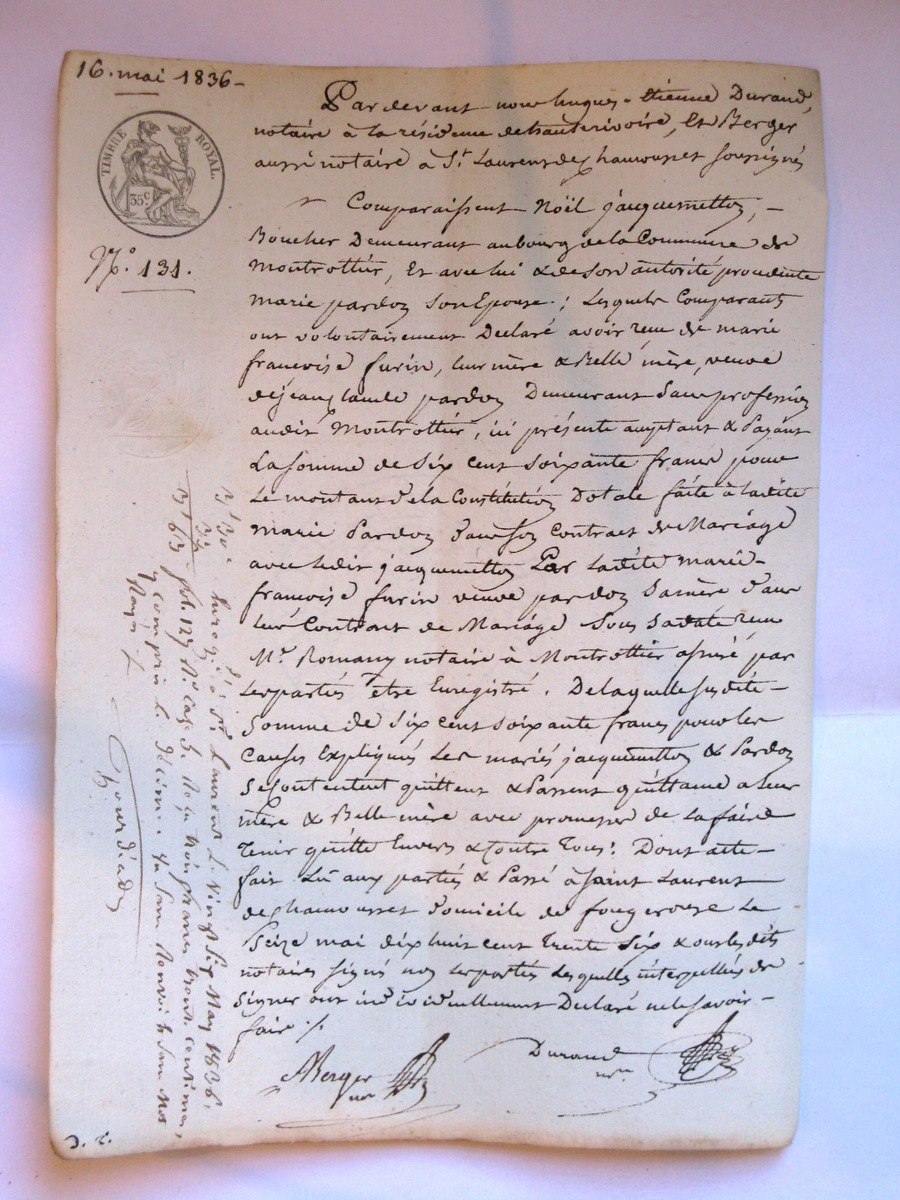 16. mai 1836 -
TIMBRE ROYAL.
35 c
N.o 131.
Pardevant nous hugues-étienne Durand,
notaire à la résidence de hauterivoire, Et Berger
aussi notaire à St. Laurent de Chamousset soussignés
Comparaissent Nöel jacquemetton, -
Boucher Demeurant au bourg de la Commune de
Montrottier, Et avec lui & de Son autorité procedente
marie pardon Son Epouse; Lesquels Comparants
ont volontairement Déclaré avoir reçu de marie
francoise furin, leur mère & Belle mère, veuve
de jean claude pardon Demeurant Sans profession
audit Montrottier, ici présente acceptant & Payant
La Somme de Six cent Soixante francs pour
Le montant de la Constitution Dotale faite à ladite
marie Pardon dans Son Contract de Mariage
avec ledit jacquemetton Par Ladite marie-
francoise furin veuve pardon Sa mère dans
leur Contrant de Mariage Sous Sa date reçu
Me. Romany notaire à Montrottier assuré par
Les partiés être Enregistré. De laquelle Susdite -
Somme de Six cent soixante francs pour les
Causes Expliqués Les mariés jacquemetton & Pardon
Se Contentent quittent & Passent quittance a Leur
mère & Belle mère avec promesse de La faire
Tenir quitte Envers & Contre Tous! Dont acte -
fait Lu aux parties & Passé à Saint Laurent
de Chamousset domicile de fougerouse Le
Seize mai dix huit cent Trente Six & ous les dits
notaires Signé non Les partiés Lesquelles interpellées de
Signer ont individuellement Déclaré ne le Savoir -
faire ./.
Berger
nre
Durand
nre
Enregé. à St. Laurent Le Vingt Six May 1836,
fol. 127 Ro. Case 5. Reçu trois francs trente centimes,
y compris le décime
D. r.